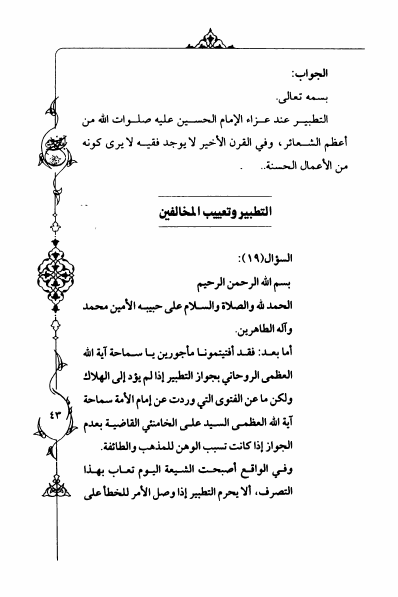 الجواب:
بسمه تعالى.
التطبير عند عزاء الإمام الحسين عليه صلوات الله من
أعظم الشعائر، وفي القرن الأخير لا يوجد فقيه لا يرى كونه
من الأعمال الحسنة..
التطبير وتعييب المخالفين
السؤال(١٩):
بسم الله الرحمن الرحيم
الحمد لله والصلاة والسلام على حبيبه الأمين محمد
وآله الطاهرين.
أما بعد: فقد أفتيتمونا مأجورين يا سماحة آية الله
العظمى الروحاني بجواز التطبير إذا لم يؤد إلى الهلاك
ولكن ما عن الفتوى التي وردت عن إمام الأمة سماحة
آية الله العظمى السيد على الخامنئي القاضية بعدم
الجواز إذا كانت تسبب الوهن للمذهب والطائفة.
وفي الواقع أصبحت الشيعة اليوم تعاب بهذا
التصرف، ألا يحرم التطبير إذا وصل الأمر للخطأ على
٤٣